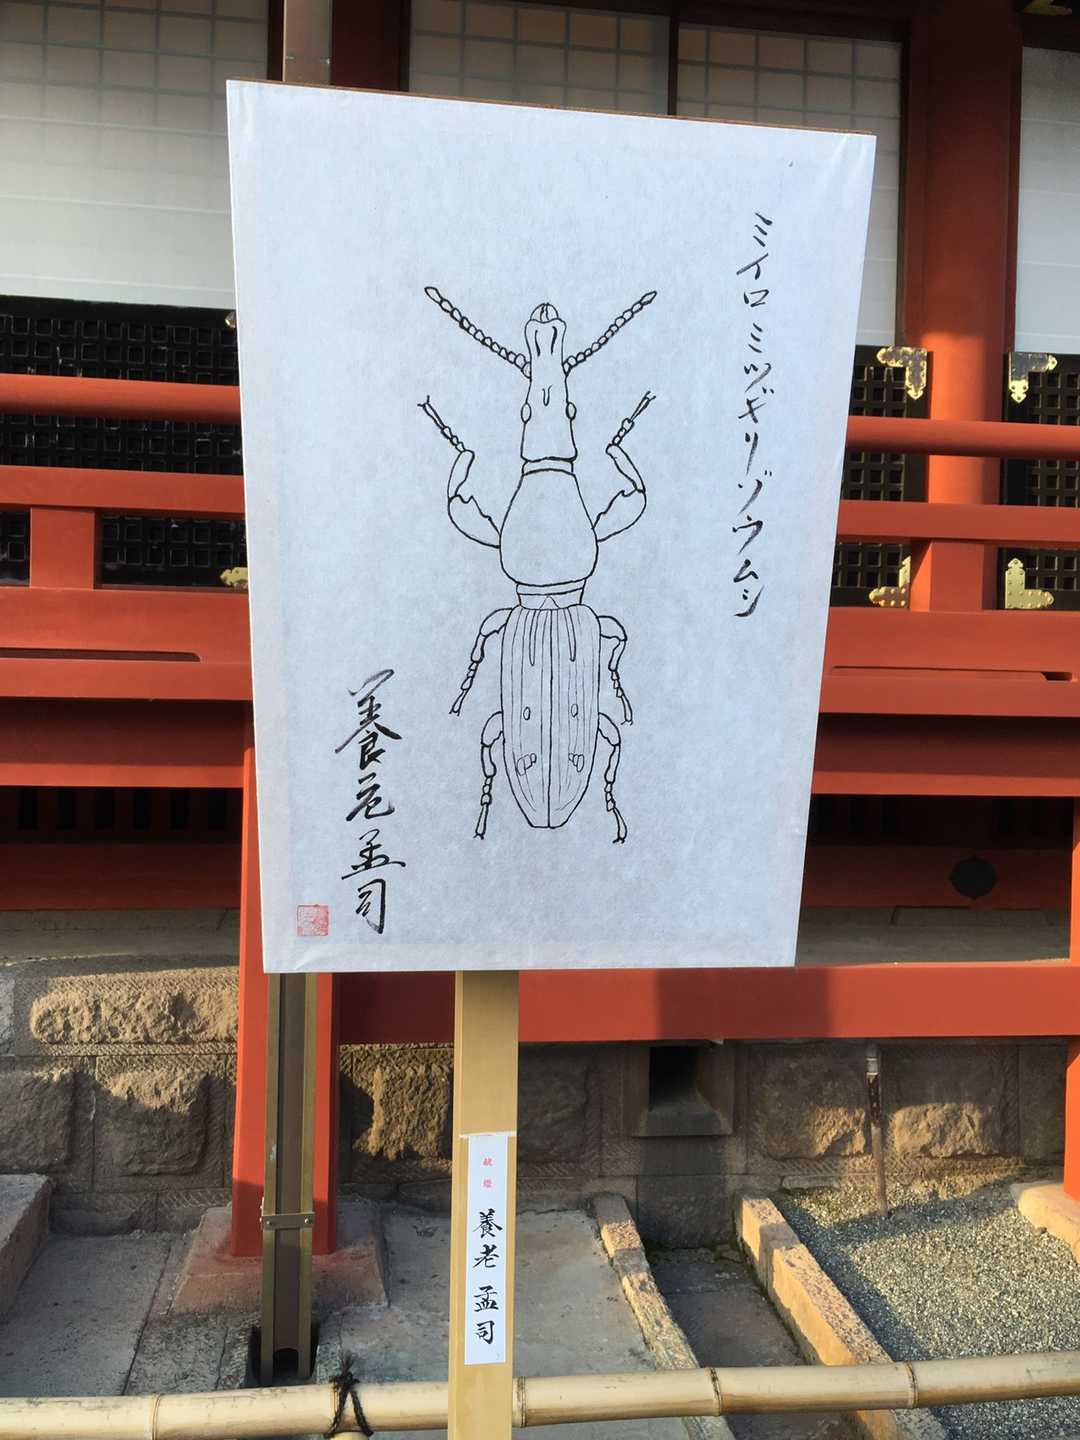 ミイロミツギリゾウムシ
養老孟司
献燈
養老孟司